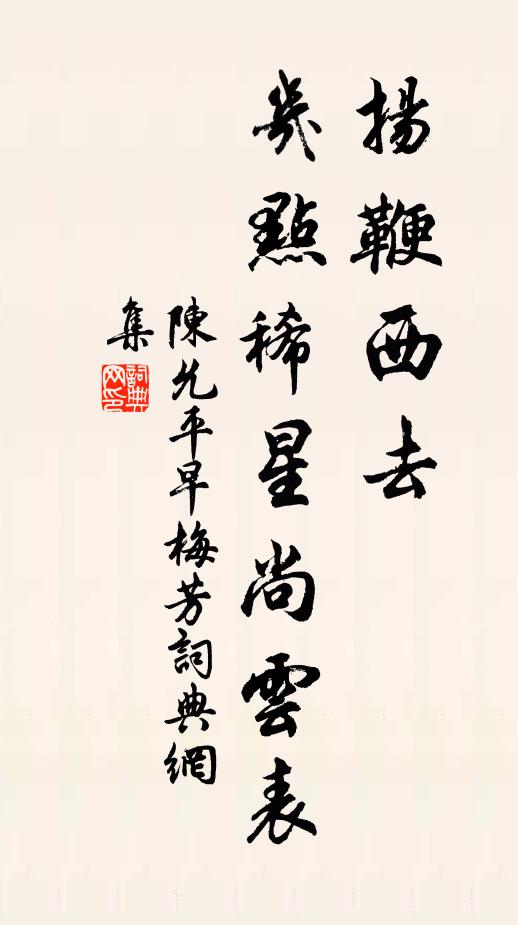 揚鞭西去
幾點稀星尚雲表
陳允平早梅芳詞典網
集
詞典網印